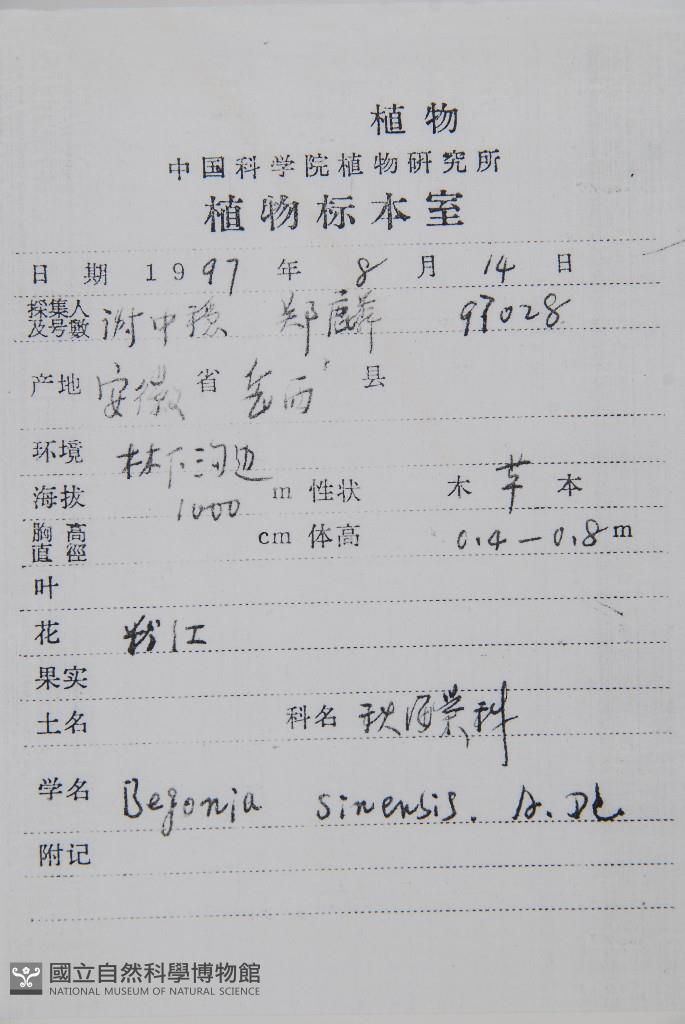 植物
中国科学院植物研究所
植物标本室
日期 1997年 8月 14日
採集人及号數 谢中稳 郑麟 97028
产地 安徽省 岳西县
环境 林下沟边
海拔 1000 m 性状 木 草 本
胸高直徑 cm 体高 0.4-0.8m
叶
花 粉红
果实
土名 科名 秋海棠科
学名 Begonia sinensis. A. DC
附记
國立自然科學博物館
NATIONAL MUSEUM OF NATURAL SCIENCE